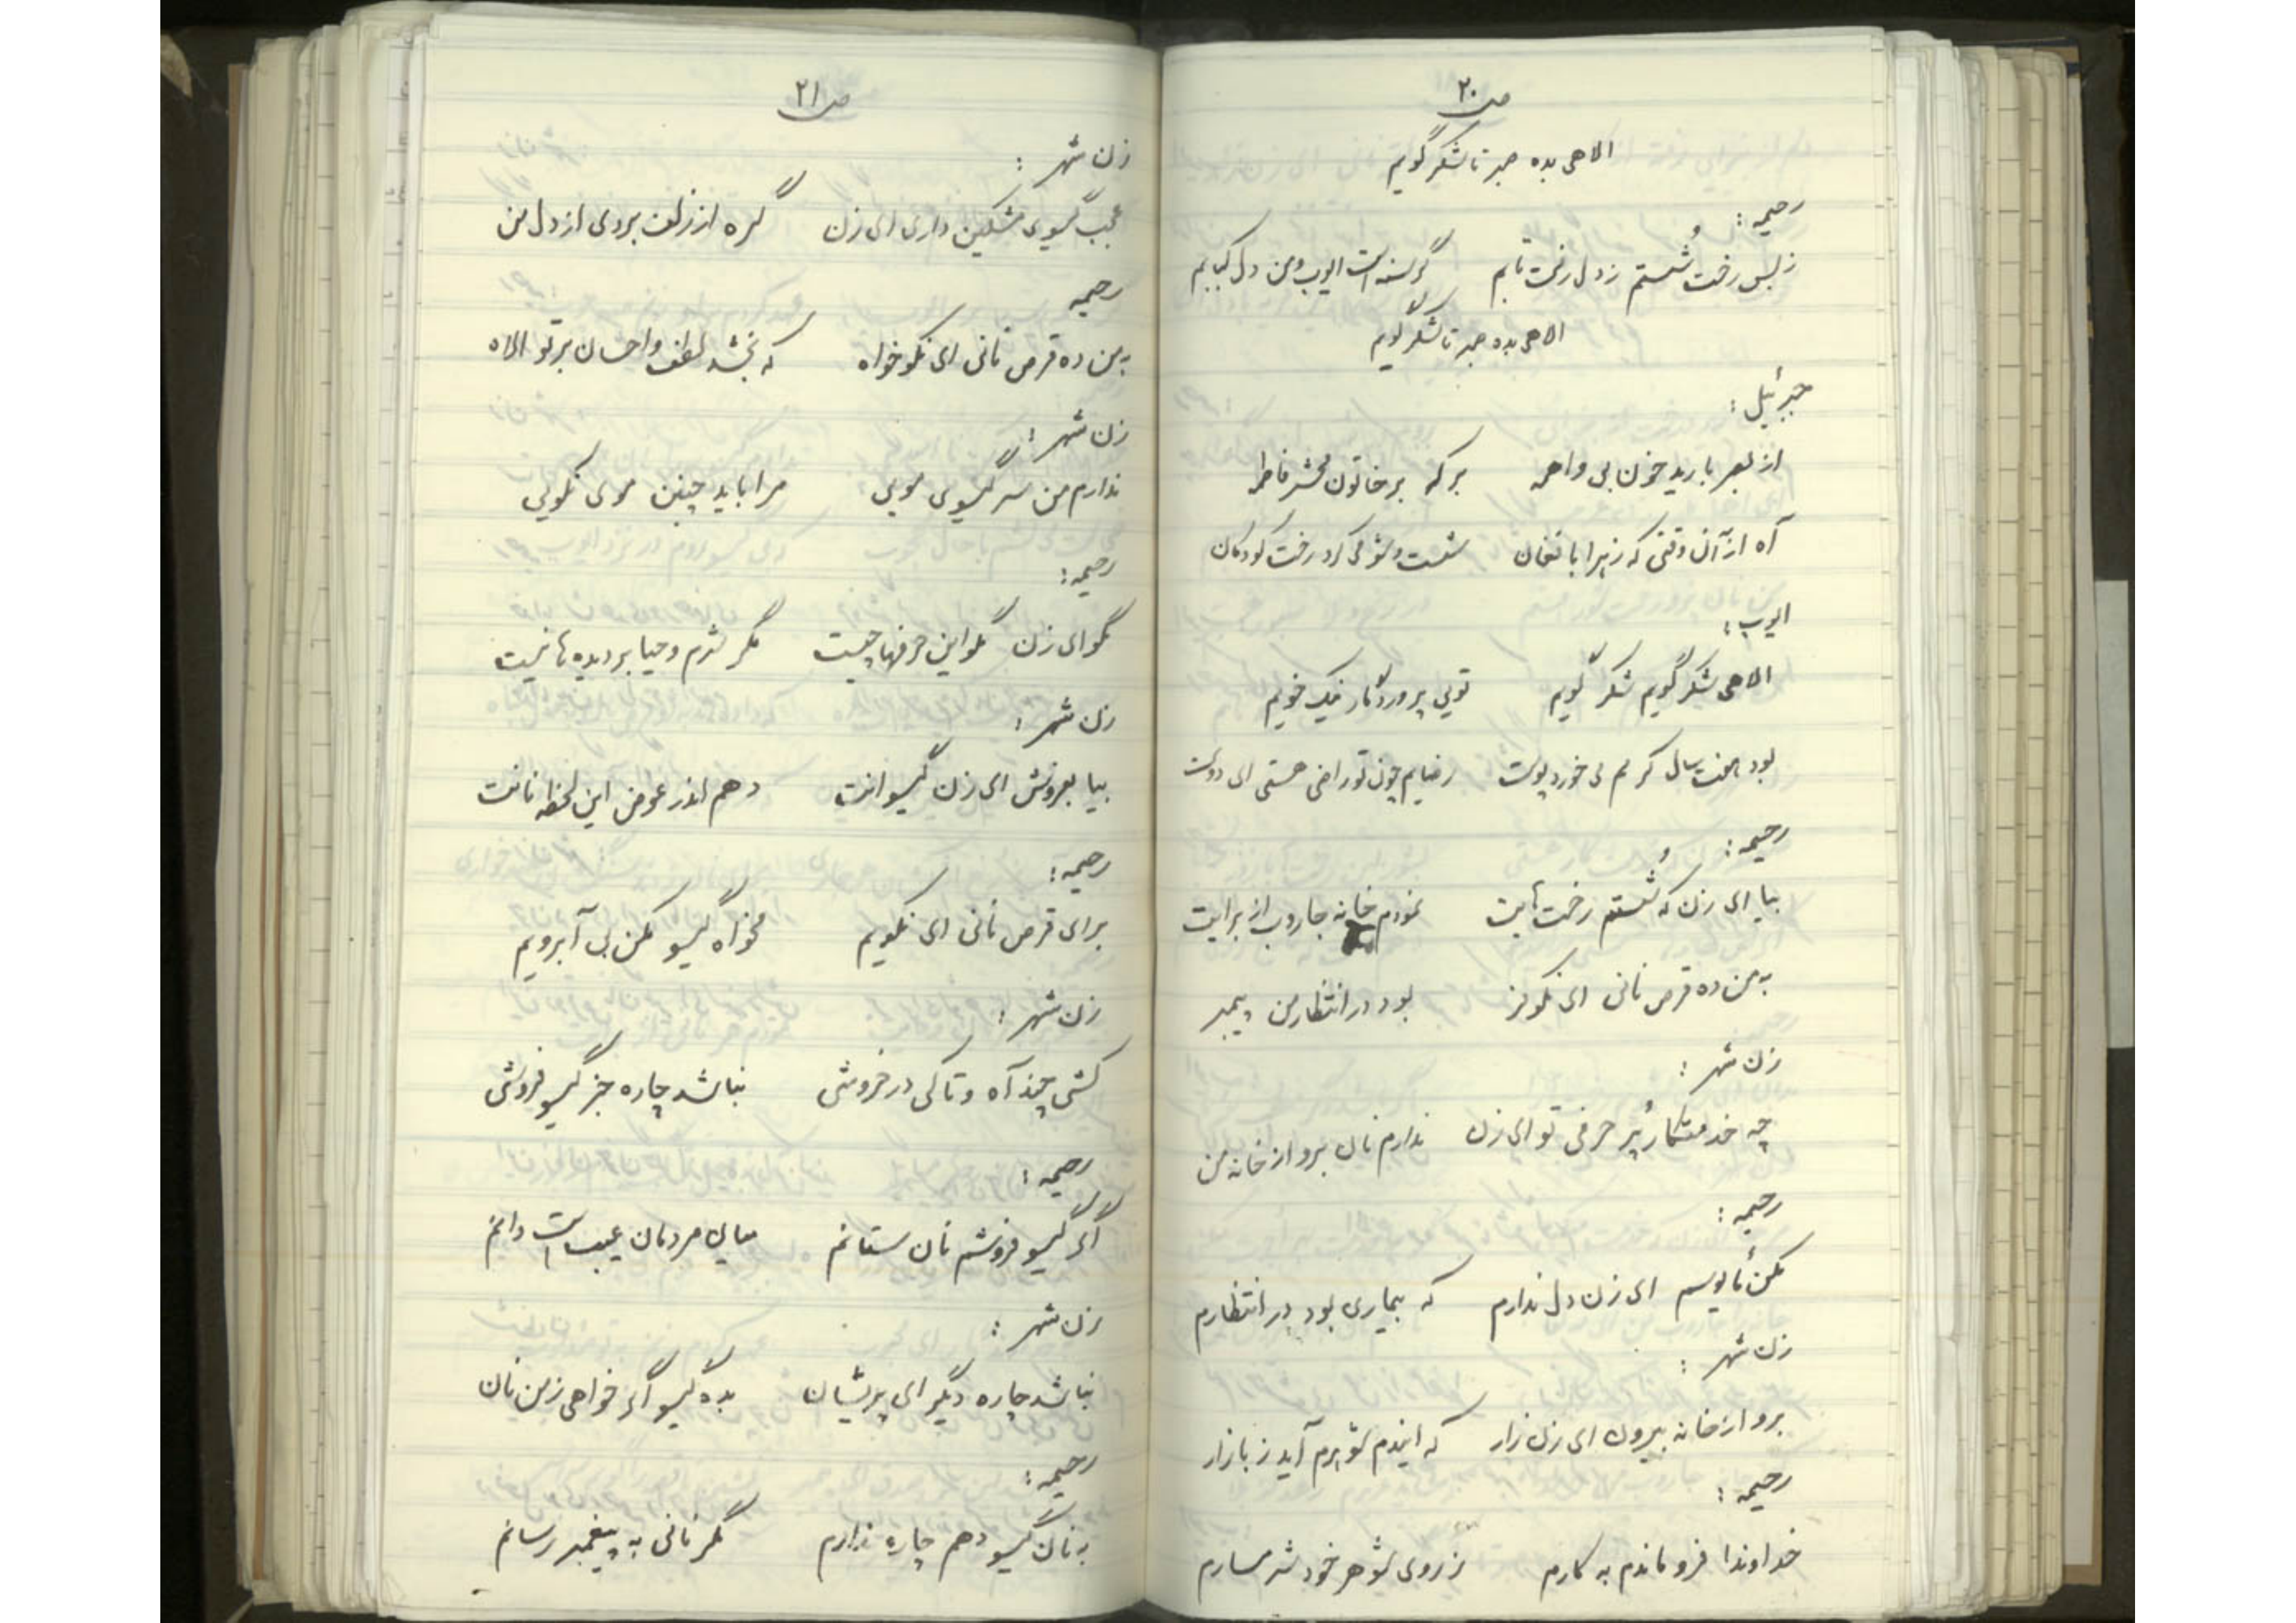 ص۲۰
الاهی بده صبر تا شکر گویم
رحیمه :
ز بس رخت شُستم ز دل رفت تابم گرسنه است ایوب و من دل کبابم
الاهی بده صبر تا شکر گویم
جبرئیل :
از بصر بارید خون بی واهمه بر که بر خاتون محشر فاطمه
آه از آن وقتی که زهرا با فغان شست و شو می کرد رخت کودکان
ایوب :
الاهی شکر گویم شکر گویم تویی پروردگار نیک خویم
بود هفت سال کرمم می خورد پوست رضایم چون تو راضی هستی ای دوست
رحیمه :
بیا ای زن که شُستم رخت هایت نمودم خانه جاروب از برایت
به من ده قرص نانی ای نکوفر بود در انتظار من پیمبر
زن شهر :
چه خدمتکار پُر حرفی تو ای زن ندارم نان برو از خانه من
رحیمه :
مکن مأیوسم ای زن دل ندارم که بیماری بود در انتظارم
زن شهر :
برو از خانه بیرون ای زن زار که ایندم شوهرم آید ز بازار
رحیمه :
خداوندا فرو ماندم به کارم ز روی شوهر خود شرمسارم
ص۲۱
زن شهر :
عجب گیسوی مشکین داری ای زن گره از زلف بردی از دل من
رحیمه
به من ده قرص نانی ای نکو خواه که بخشد لطف و احسان بر تو الاه
زن شهر :
ندارم من سر گیسوی مویی مرا باید چنین موی نکویی
رحیمه :
نگو ای زن نگو این حرفها چیست مگر شرم و حیا بر دیده ها نیست
زن شهر :
بیا بفروش ای زن گیسوانت دهم اندر عوض این لحظه نانت
رحیمه :
برای قرص نانی ای نکویم مخواه گیسو مکن بی آبرویم
زن شهر :
کشی چند آه و تا کی در خروشی نباشد چاره جز گیسو فروشی
رحیمه :
اگر گیسو فروشم نان ستانم میان مردمان عیب است دانم
زن شهر :
نباشد چاره دیگر ای پریشان بده گیسو اگر خواهی ز من نان
رحیمه :
به نان گیسو دهم چاره ندارم مگر نانی به پیغمبر رسانم